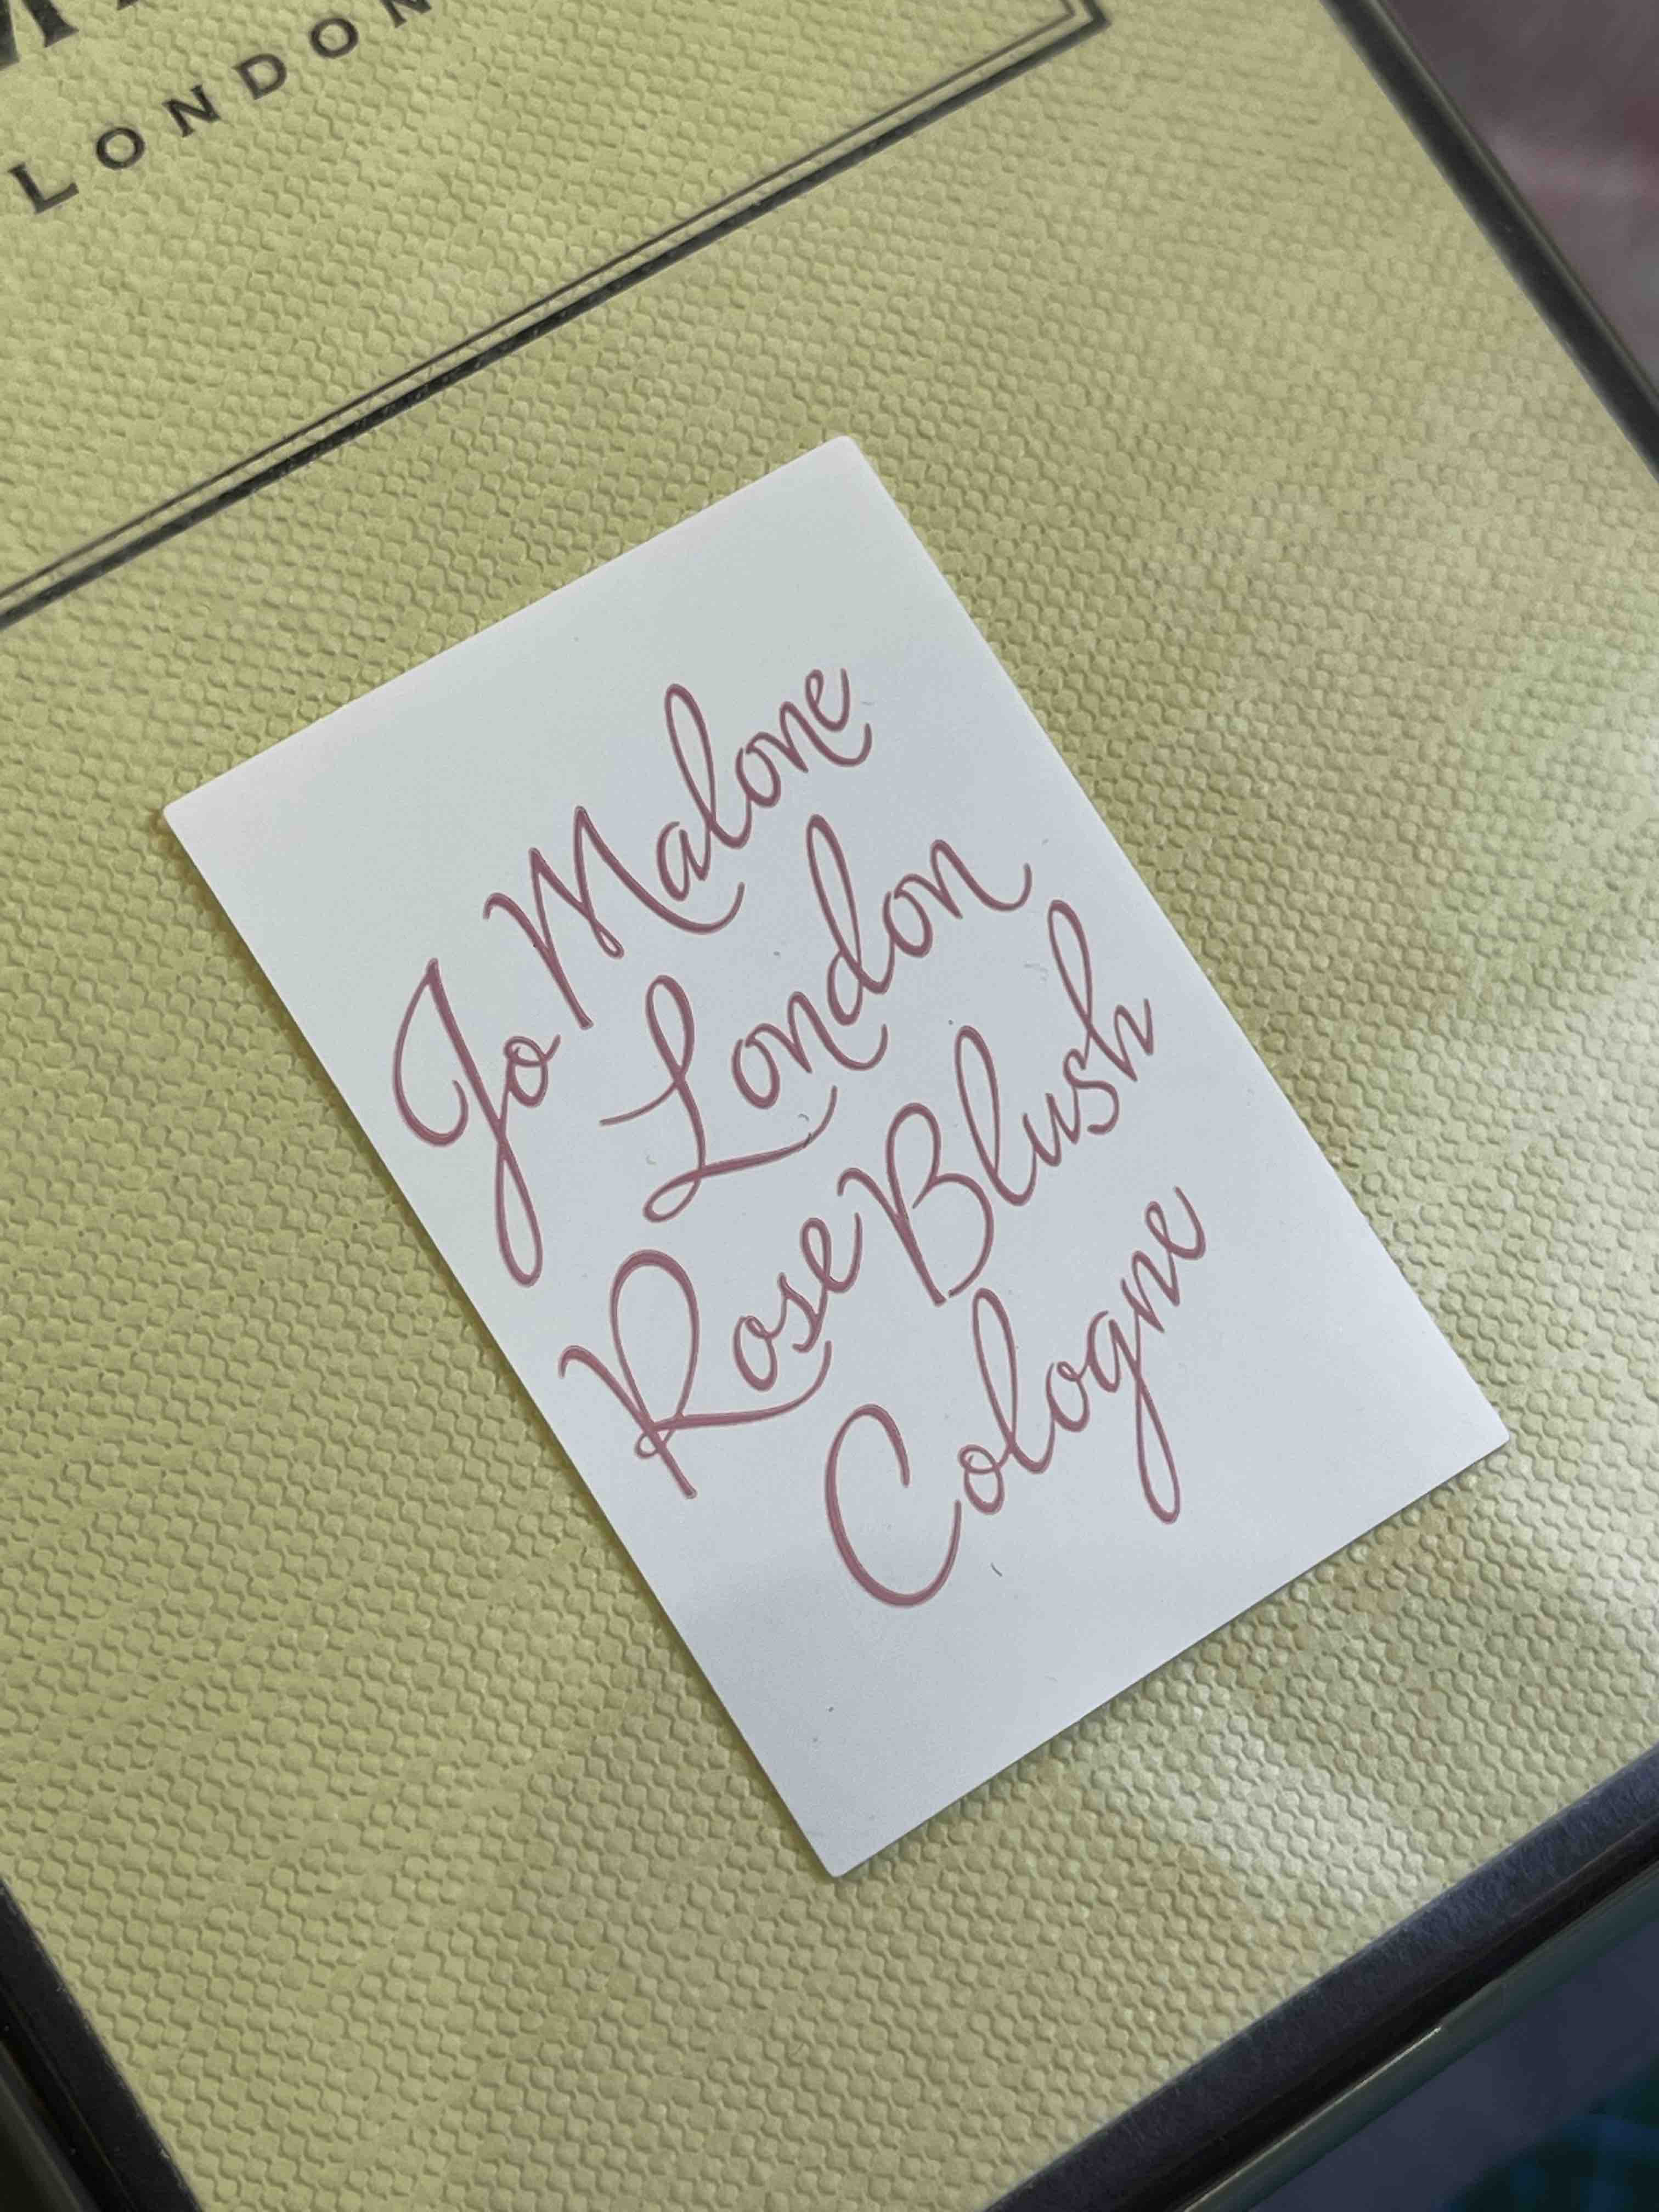 LONDON
Jo Malone
London
Rose Blush
Cologne